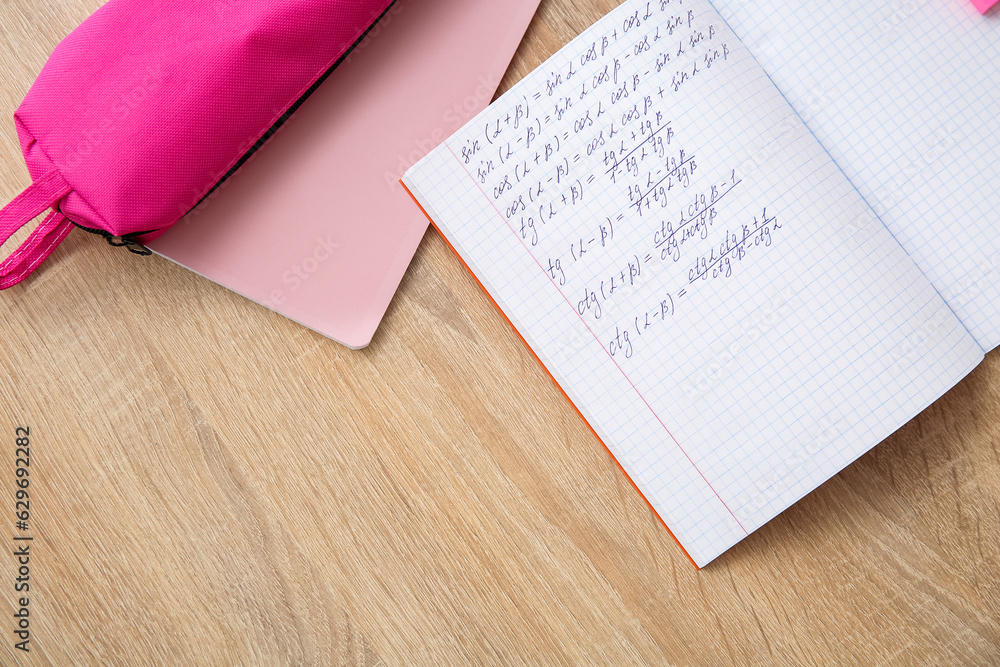 sin (α+β) = sin α cos β + cos α sin β
sin (α-β) = sin α cos β - cos α sin β
cos (α+β) = cos α cos β - sin α sin β
cos (α-β) = cos α cos β + sin α sin β
tg (α+β) = tg α + tg β / 1 - tg α tg β
tg (α-β) = tg α - tg β / 1 + tg α tg β
ctg (α+β) = ctg α ctg β - 1 / ctg α + ctg β
ctg (α-β) = ctg α ctg β + 1 / ctg β - ctg α
Adobe Stock | #629692282